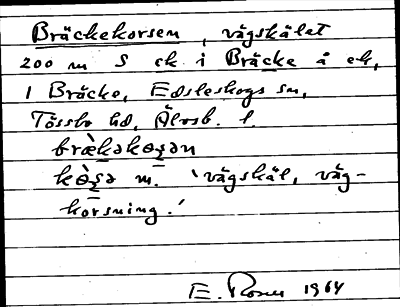 Bräckekorsen, vägskälet
200 m S ck i Bräcke å ek,
1 Bräcke, Edsleskogs sn,
Tössbo hd, Älvsb. l.
bræ̀kəkɷʂən
kɷ̀ʂə m. 'vägskäl, väg-
korsning.'
E. Rosm 1964